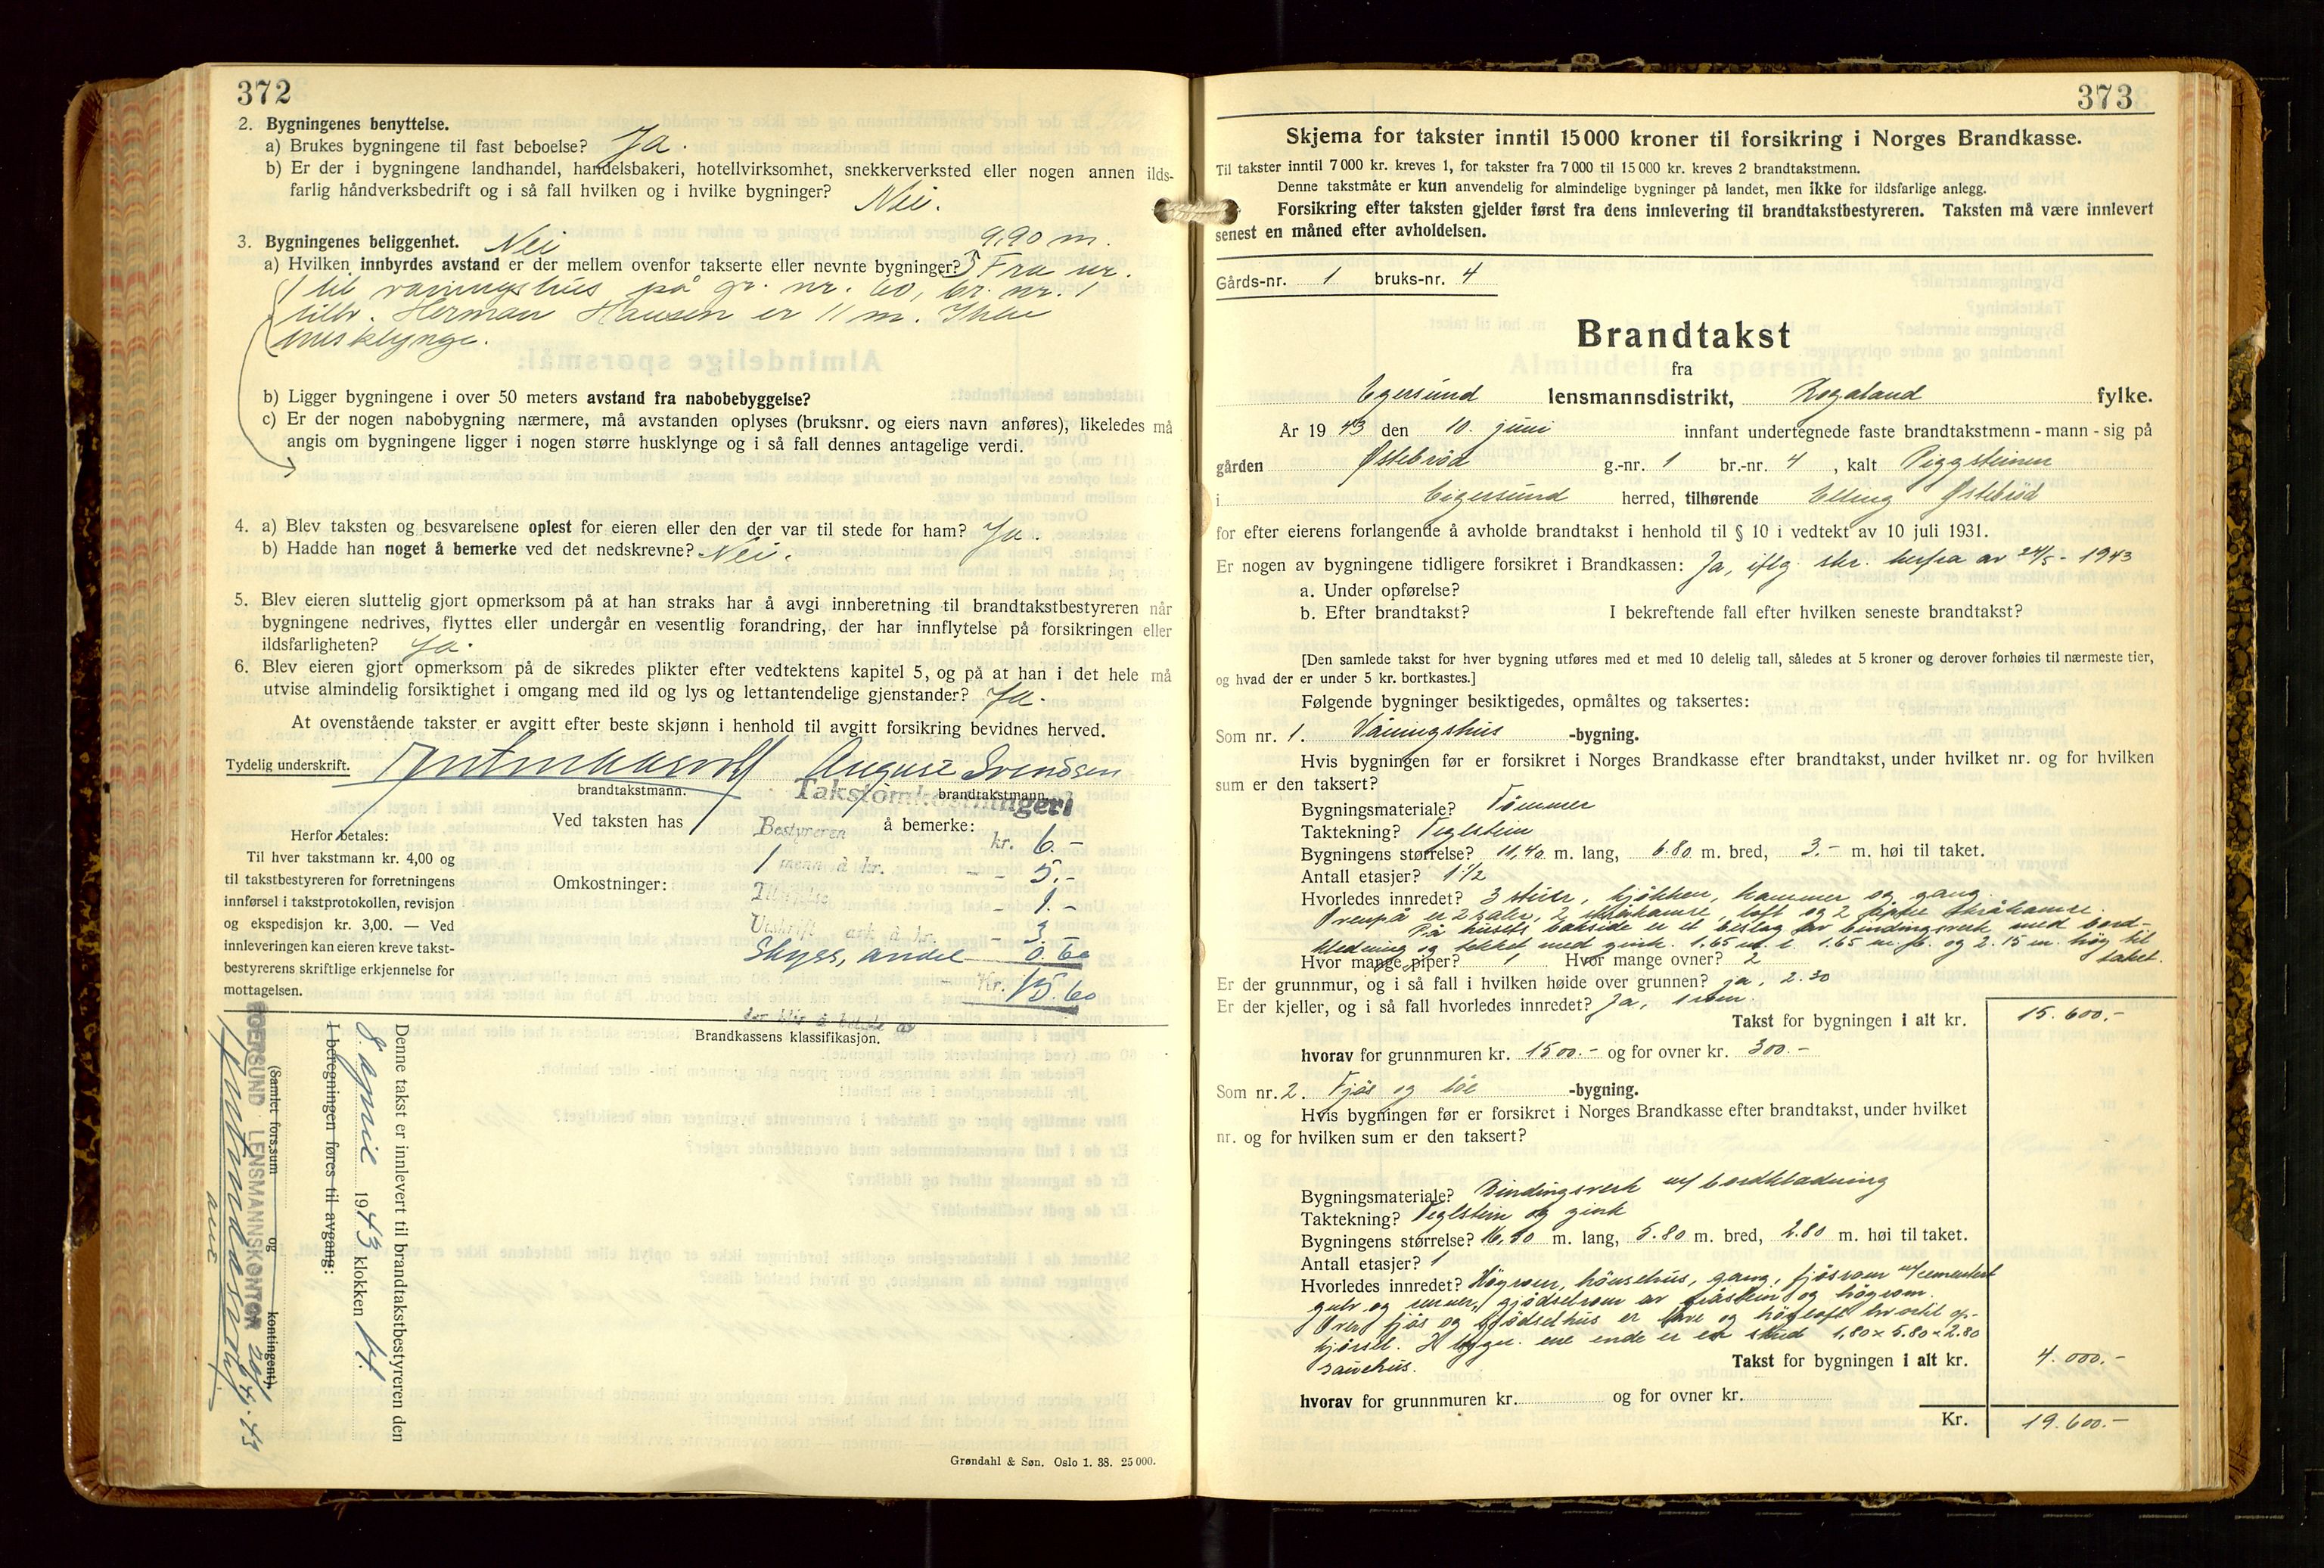 372
2. Bygningenes benyttelse.
a) Brukes bygningene til fast beboelse? Ja.
b) Er der i bygningene landhandel, handelsbakeri, hotellvirksomhet, snekkerverksted eller nogen annen ilds-
farlig håndverksbedrift og i så fall hvilken og i hvilke bygninger? Nei.
3. Bygningenes beliggenhet. Nei 9,90 m.
a) Hvilken innbyrdes avstand er der mellem ovenfor takserte eller nevnte bygninger? Fra nr.
1 til våningshus på gr. nr. 60, br. nr. 1
tilh. Herman Hansen er 11 m. Ikke
husklynge.
b) Ligger bygningene i over 50 meters avstand fra nabobebyggelse?
c) Er der nogen nabobygning nærmere, må avstanden oplyses (bruksnr. og eiers navn anføres), likeledes må
angis om bygningene ligger i nogen større husklynge og i så fall dennes antagelige verdi.
4. a) Blev taksten og besvarelsene oplest for eieren eller den der var til stede for ham? Ja.
b) Hadde han noget å bemerke ved det nedskrevne? Nei.
5. Blev eieren sluttelig gjort opmerksom på at han straks har å avgi innberetning til brandtakstbestyreren når
bygningene nedrives, flyttes eller undergår en vesentlig forandring, der har innflytelse på forsikringen eller
ildsfarligheten? Ja.
6. Blev eieren gjort opmerksom på de sikredes plikter efter vedtektenes kapitel 5, og på at han i det hele må
utvise almindelig forsiktighet i omgang med ild og lys og lettantendelige gjenstander? Ja.
At ovenstående takster er avgitt efter beste skjønn i henhold til avgitt forsikring bevidnes herved.
Tydelig underskrift. August Svendsen
brandtakstmann. brandtakstmann.
Takstomkostninger
Ved taksten has å bemerke:
Herfor betales:
Til hver takstmann kr. 4,00 og
til takstbestyreren for forretningens
innførsel i takstprotokollen, revisjon
og ekspedisjon kr. 3,00. — Ved
innleveringen kan eieren kreve takst-
bestyrerens skriftlige erkjennelse for
mottagelsen.
Omkostninger:
Bestyreren kr. 6.-
1 menn à kr. - 5.-
- 1.-
Utskrift ark à kr. - 3.-
Skyss, andel 0.60
Kr. 15.60
Brandkassens klassifikasjon.
Denne takst er innlevert til brandtakstbestyreren den
8. april 1943 klokken 14.
I beregningen føres til avgang:
(Samlet fors.sum og kontingent).
EGERSUND LENSMANNSKONTOR
Grøndahl & Søn. Oslo 1. 38. 25 000.
373
Skjema for takster inntil 15 000 kroner til forsikring i Norges Brandkasse.
Til takster inntil 7 000 kr. kreves 1, for takster fra 7 000 til 15 000 kr. kreves 2 brandtakstmenn.
Denne takstmåte er kun anvendelig for almindelige bygninger på landet, men ikke for ildsfarlige anlegg.
Forsikring efter taksten gjelder først fra dens innlevering til brandtakstbestyreren. Taksten må være innlevert
senest en måned efter avholdelsen.
Gårds-nr. 1 bruks-nr. 4
Brandtakst
fra
Egersund lensmannsdistrikt, Rogaland fylke.
År 1943 den 10. juni innfant undertegnede faste brandtakstmenn - mann - sig på
gården Østebrød g.-nr. 1 br.-nr. 4, kalt Piggsteinen
i Eigersund herred, tilhørende Elling Østebrød
for efter eierens forlangende å avholde brandtakst i henhold til § 10 i vedtekt av 10 juli 1931.
Er nogen av bygningene tidligere forsikret i Brandkassen: Ja, iflg. skr. herfra av 24/5 - 1943
a. Under opførelse?
b. Efter brandtakst? I bekreftende fall efter hvilken seneste brandtakst?
[Den samlede takst for hver bygning utføres med et med 10 delelig tall, således at 5 kroner og derover forhøies til nærmeste tier,
og hvad der er under 5 kr. bortkastes.]
Følgende bygninger besiktigedes, opmåltes og taksertes:
Som nr. 1. Våningshus -bygning.
Hvis bygningen før er forsikret i Norges Brandkasse efter brandtakst, under hvilket nr. og for hvilken
sum er den taksert?
Bygningsmateriale? Tømmer
Taktekning? Teglstein
Bygningens størrelse? 11,40 m. lang, 6.80 m. bred, 3.- m. høi til taket.
Antall etasjer? 1 1/2
Hvorledes innredet? 3 stuer, kjøkken, kammer og gang.
Ovenpå er 2 saler, 2 skråkamre, loft og 2 skråkamre.
På husets bakside er et beslag av bindingsverk med bord-
kledning og tekket med zink. 1.65 m. l. 1.65 m. b. og 2.15 m. høg til
taket.
Hvor mange piper? 1 Hvor mange ovner? 2
Er der grunnmur, og i så fall i hvilken høide over grunnen? ja, 2.30
Er der kjeller, og i så fall hvorledes innredet? Ja, 1 rom.
Takst for bygningen i alt kr. 15.600.-
hvorav for grunnmuren kr. 1500.- og for ovner kr. 300.-
Som nr. 2. Fjøs og løe -bygning.
Hvis bygningen før er forsikret i Norges Brandkasse efter brandtakst, under hvilket
nr. og for hvilken sum er den taksert?
Bygningsmateriale? Bindingsverk m/ bordkledning
Taktekning? Teglstein og zink
Bygningens størrelse? 16,50 m. lang, 5.80 m. bred, 2.80 m. høi til taket.
Antall etasjer? 1
Hvorledes innredet? Høyrom, hønsehus, gang, fjøsrom m/cementert
gulv og renner, gjødselrom av gråstein og høyrom.
Over fjøs og gjødselhus er lave og høyloft hvortil op-
kjørsel. I bygn. ene ende er en skud 1,80 x 5.80 x 2.80
sauehus.
Takst for bygningen i alt kr. 4.000.-
hvorav for grunnmuren kr. og for ovner kr.
Kr. 19.600.-